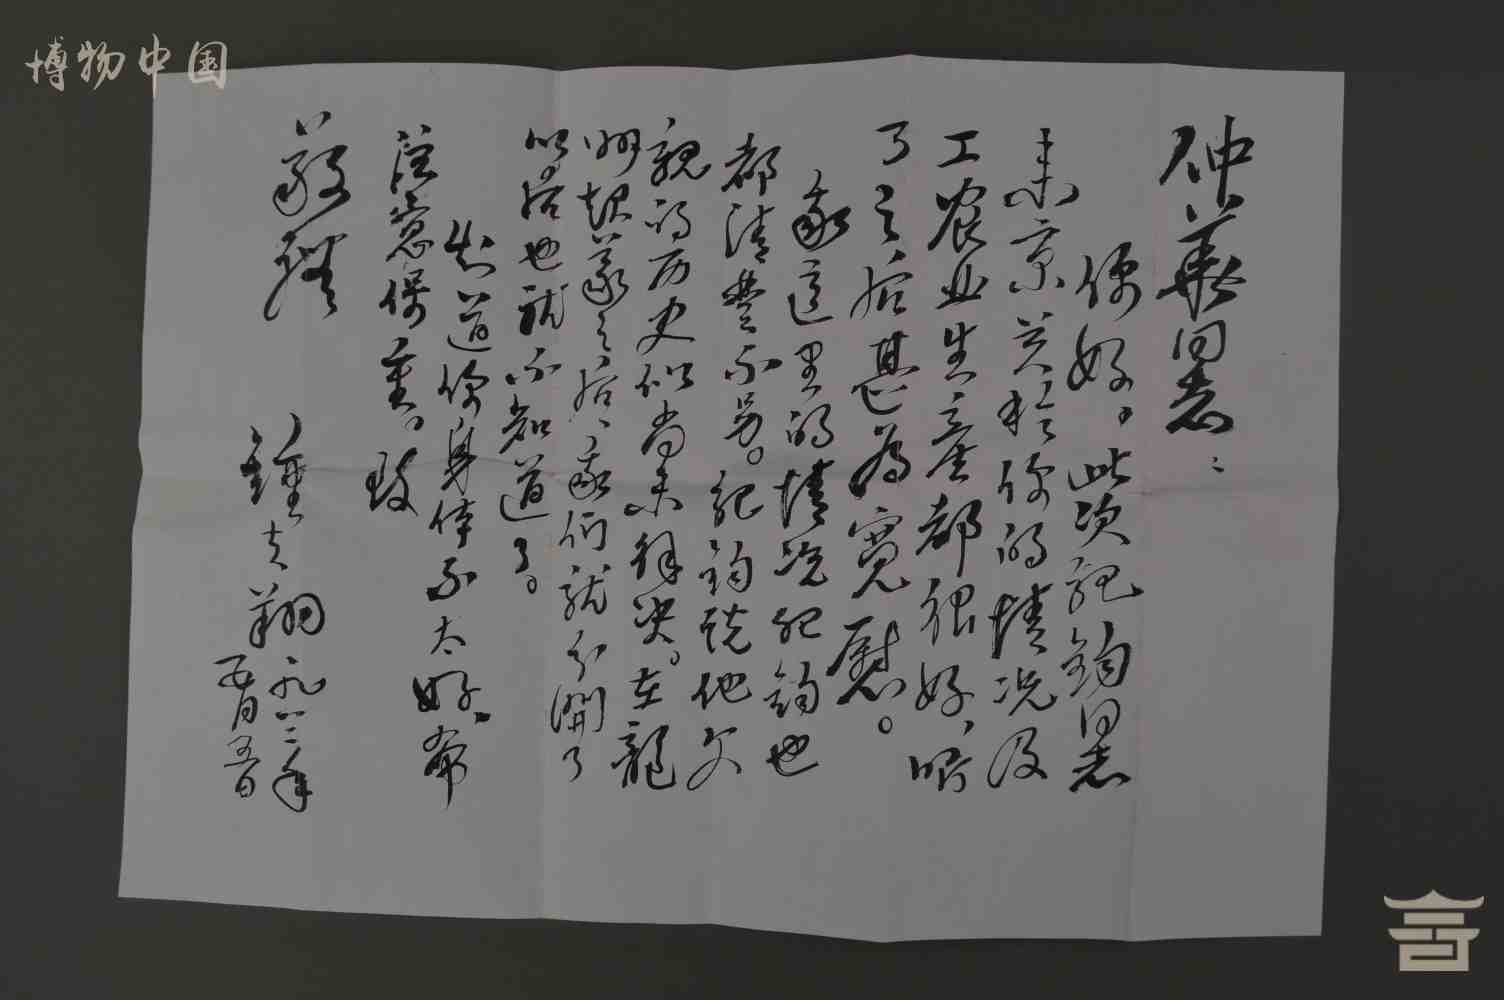 博物中国
仲华同志：
你好。此次记钧同志
来京关于你的情况及
工农业生产都很好，听
了之后甚为宽慰。
我这里的情况记钧也
都清楚不另。记钧说他父
亲的历史似尚未解决。在龙
州起义之后，我们就分开了
以后也就不知道了。
知道你身体不太好，希
注意保重。致
敬礼
钟夫翔 一九八二年
五月五日